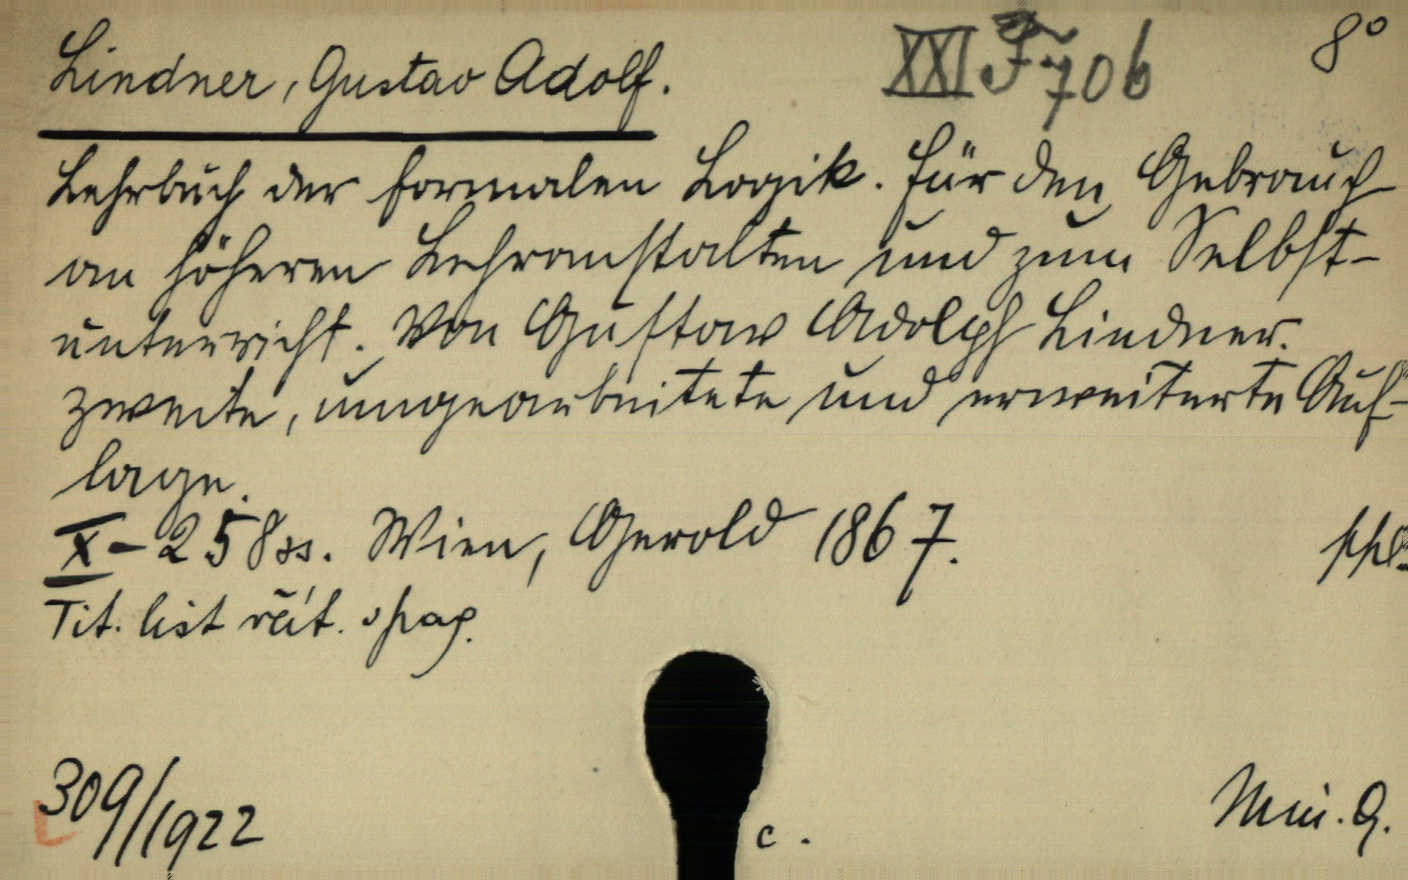 Lindner, Gustav Adolf.
XXI F 706
8°
Lehrbuch der formalen Logik. Für den Gebrauch
an höheren Lehranstalten und zum Selbst-
unterricht. Von Gustav Adolph Lindner.
Zweite, umgearbeitete und erweiterte Auf-
lage.
X-258 ss. Wien, Gerold 1867.
Tit. list
309/1922
c.